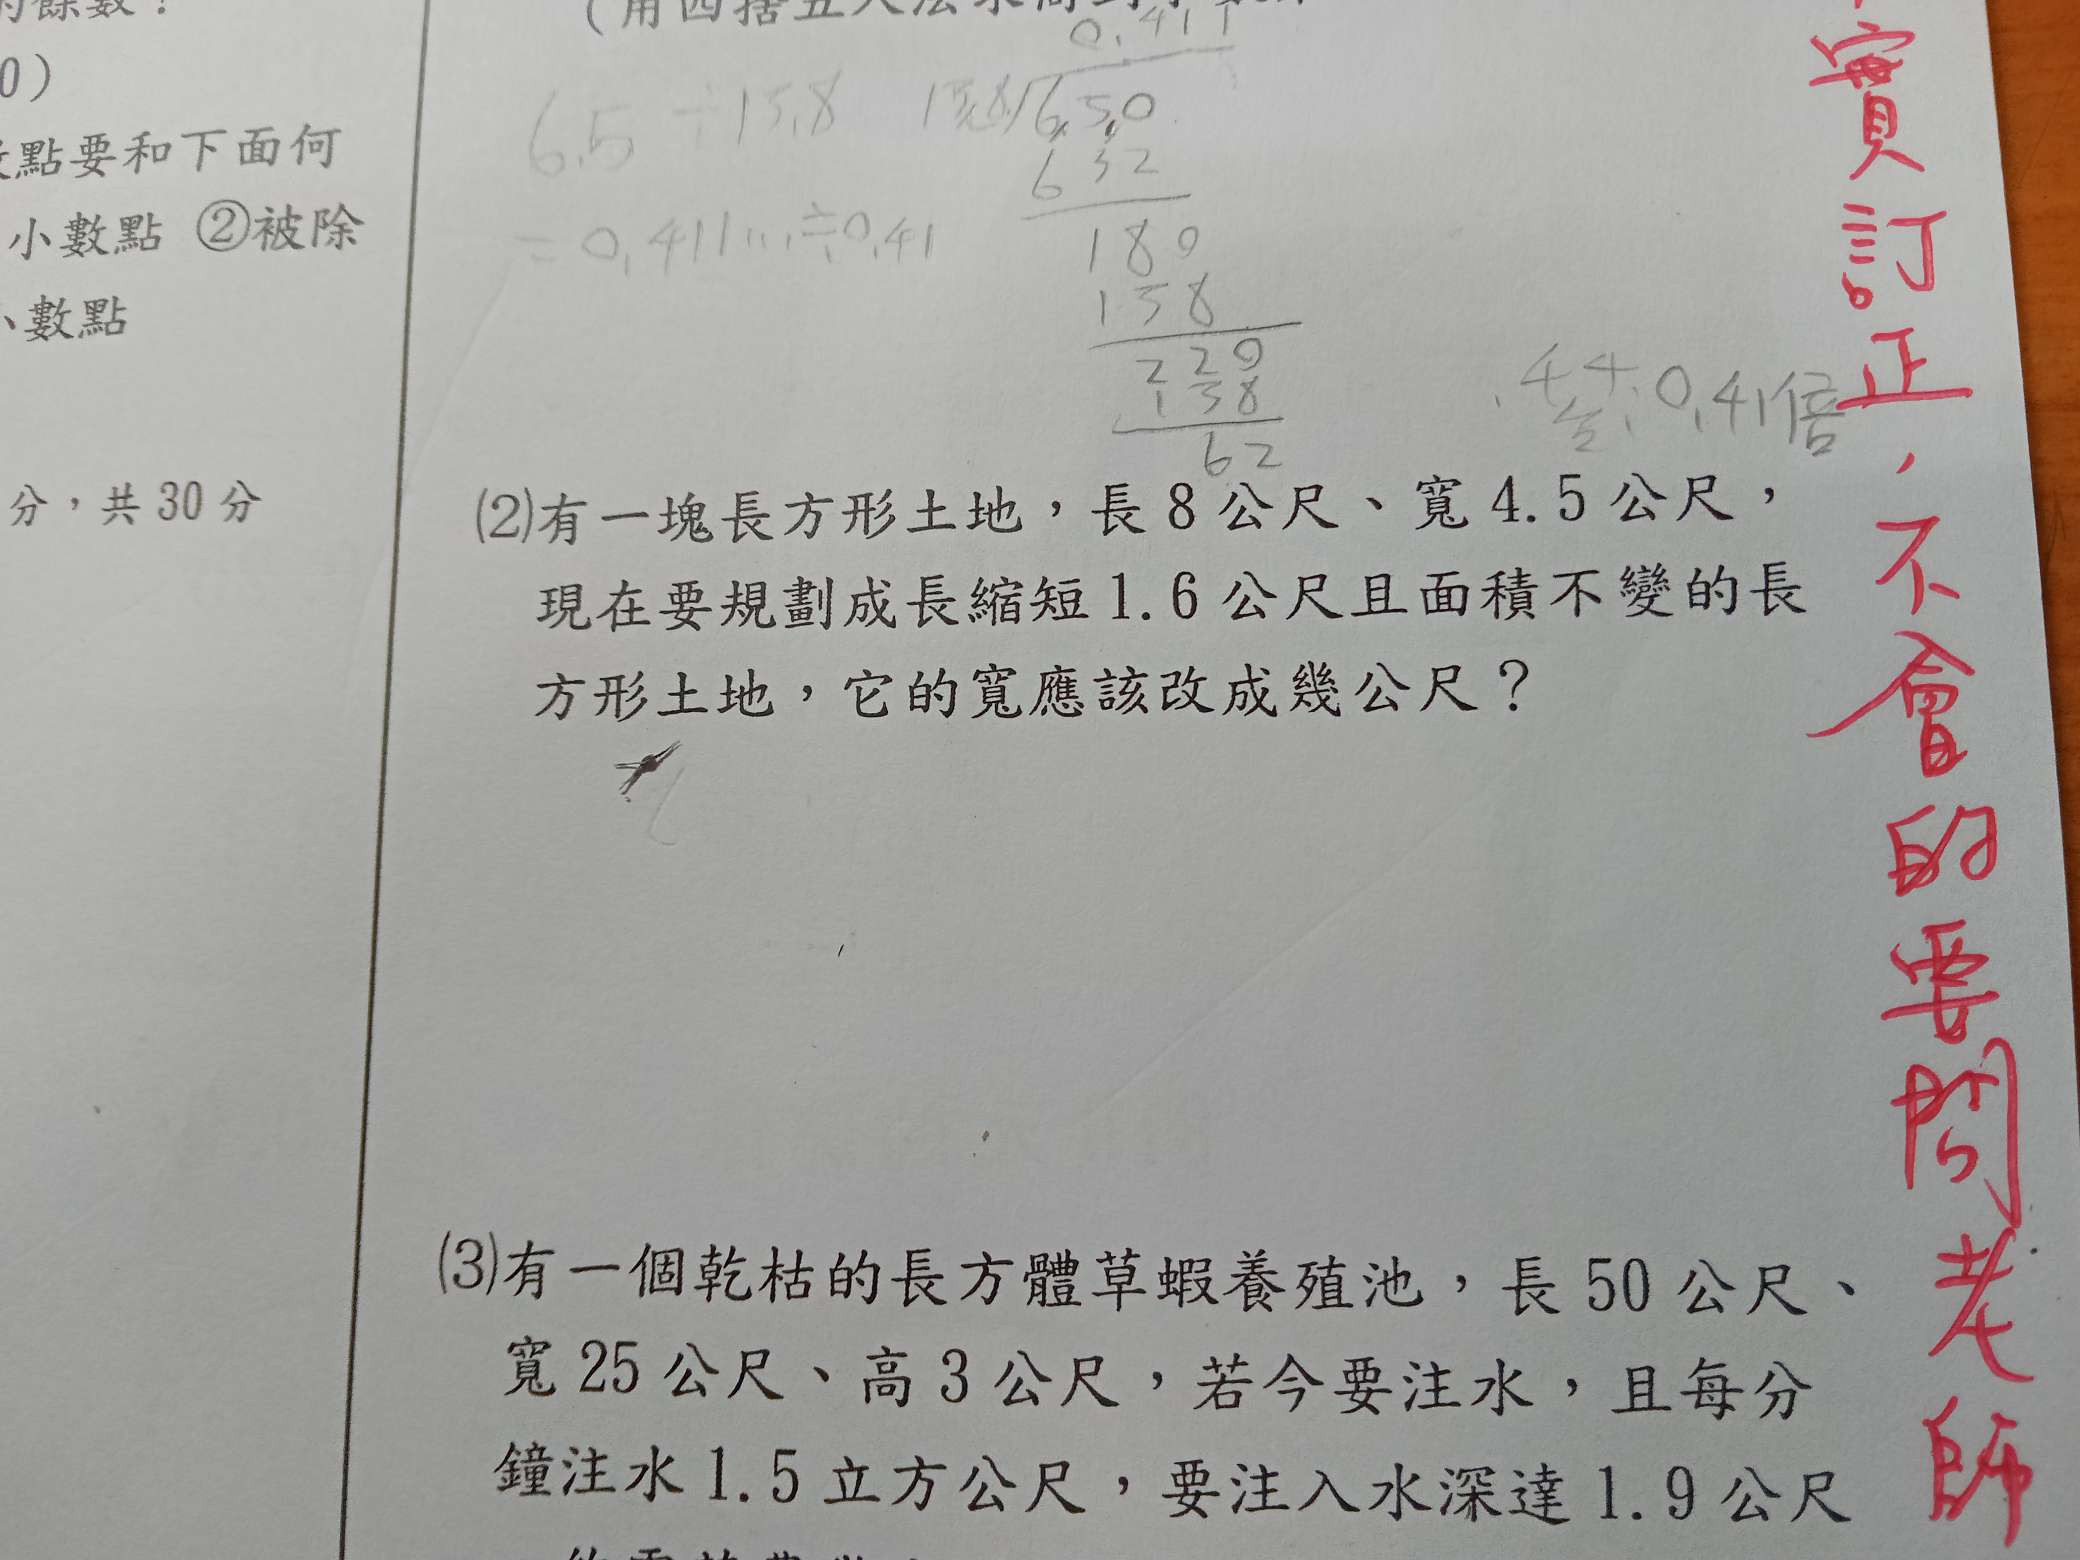 的餘數？
0）
點要和下面何
小數點 ②被除
小數點
分，共30分
(用四捨五入法求商到小
6.5÷15.8
=0.411...÷0.41
0.411
15.8 6.5.0
632
180
158
220
158
62
答:0.41倍
(2)有一塊長方形土地，長8公尺、寬4.5公尺，
現在要規劃成長縮短1.6公尺且面積不變的長
方形土地，它的寬應該改成幾公尺？
(3)有一個乾枯的長方體草蝦養殖池，長50公尺、
寬25公尺、高3公尺，若今要注水，且每分
鐘注水1.5立方公尺，要注入水深達1.9公尺
實訂正，不會的要問老師